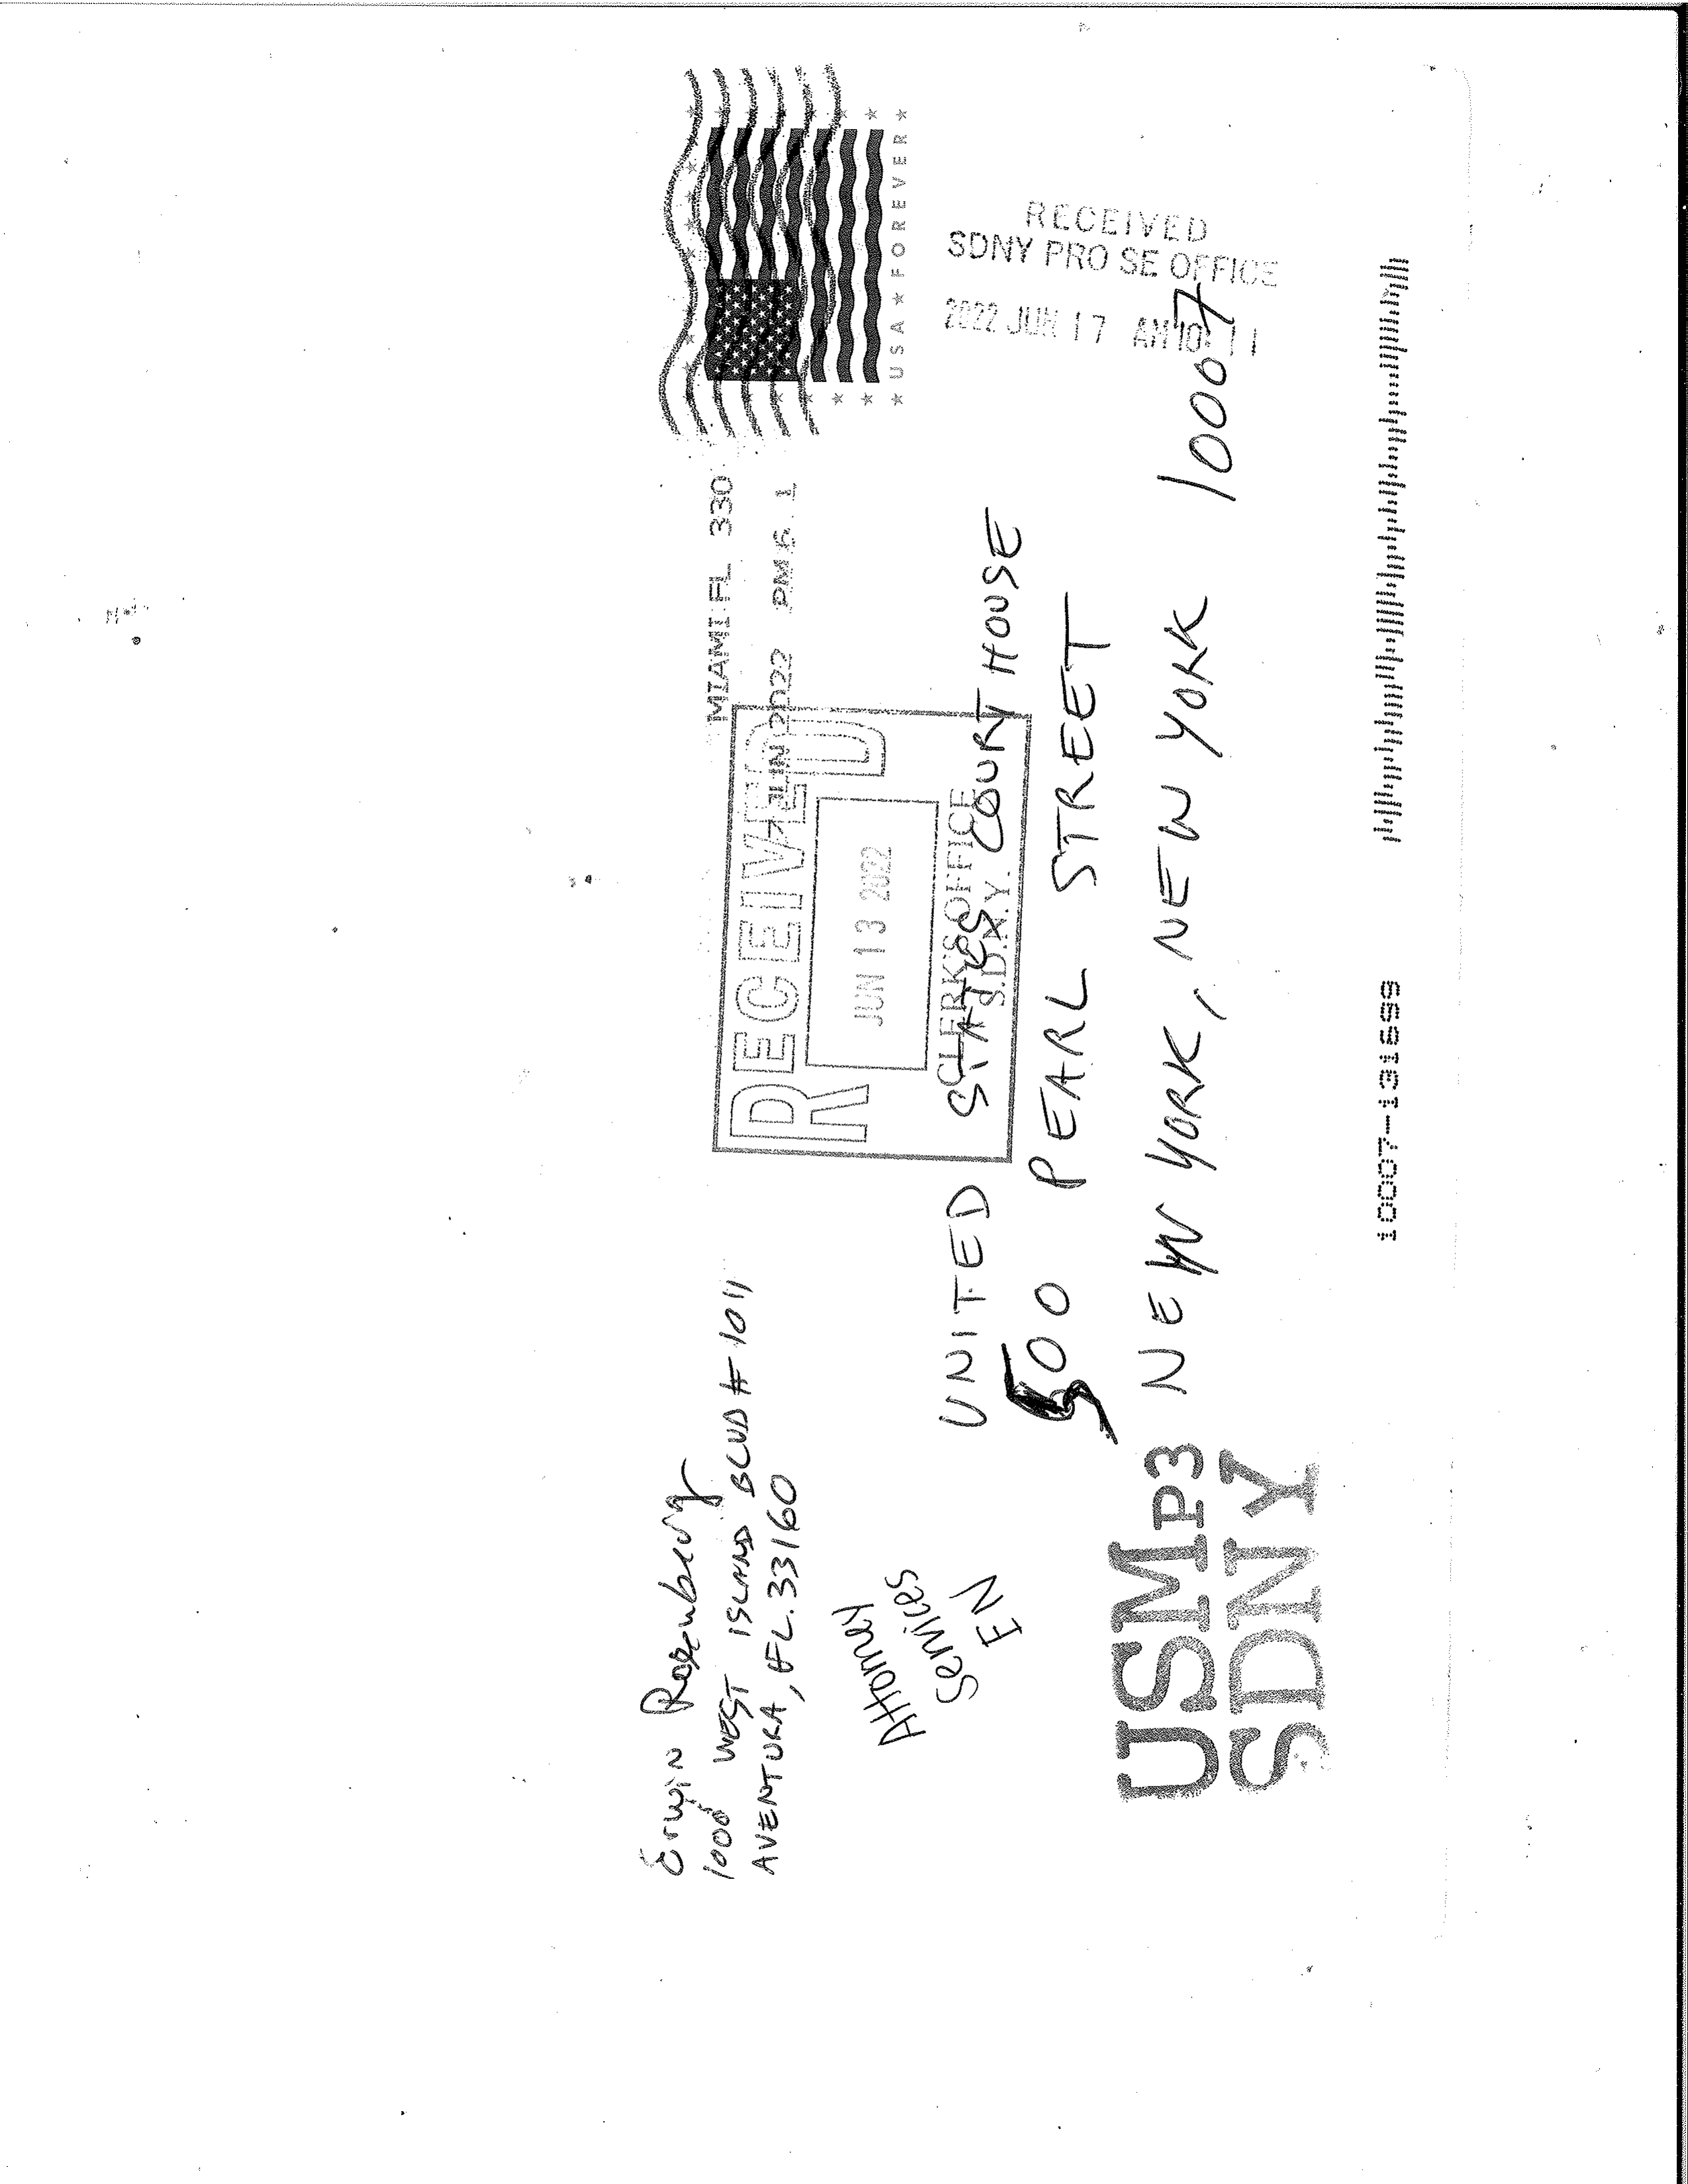 Erwin Rosenberg
1000 WEST ISLAND BLVD # 1011
AVENTURA, FL. 33160
MIAMI FL 330
7 JUN 2022 PM 6 L
★ USA ★ FOREVER ★
RECEIVED
JUN 13 2022
CLERK'S OFFICE
S.D.N.Y.
RECEIVED
SDNY PRO SE OFFICE
2022 JUN 17 AM 10: 11
Attorney
Services
EN
UNITED STATES COURTHOUSE
500 PEARL STREET
NEW YORK, NEW YORK 10007
USMP3
SDNY
10007-131699